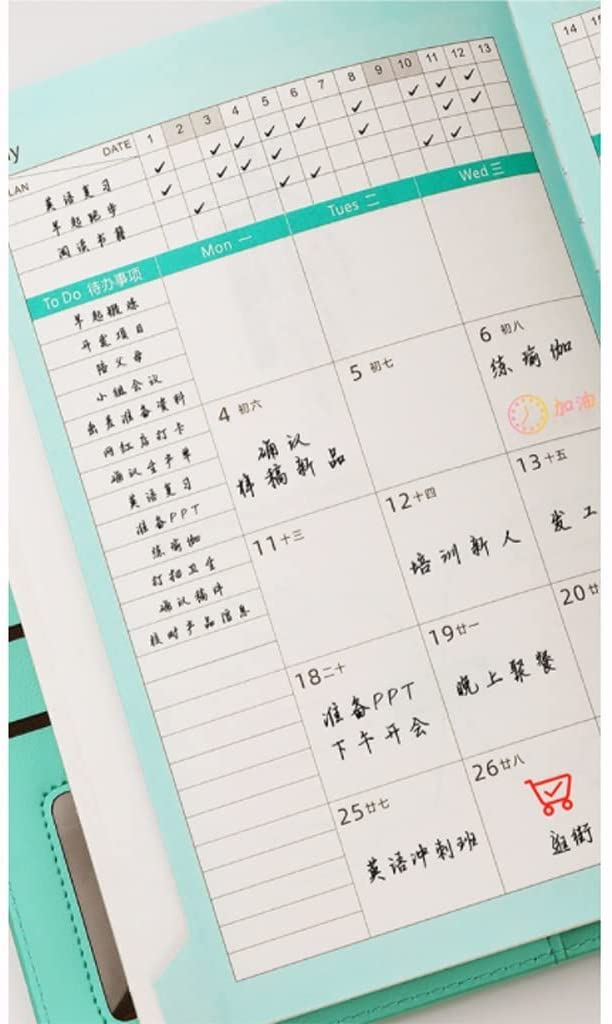 DATE 1 2 3 4 5 6 7 8 9 10 11 12 13
14
英语复习
早起跑步
阅读书籍
Mon 一 Tues 二 Wed 三
To Do 待办事项
早起锻炼
开发项目
陪父母
小组会议
出差准备资料
网红店打卡
确认生产单
英语复习
准备PPT
练瑜伽
打扫卫生
确认稿件
核对产品信息
4 初六
确认
样稿新品
5 初七
6 初八
练瑜伽
加油
11 十三
12 十四
培训新人
13 十五
发工
18 二十
准备PPT
下午开会
19 廿一
晚上聚餐
20 廿
25 廿七
英语冲刺班
26 廿八
逛街